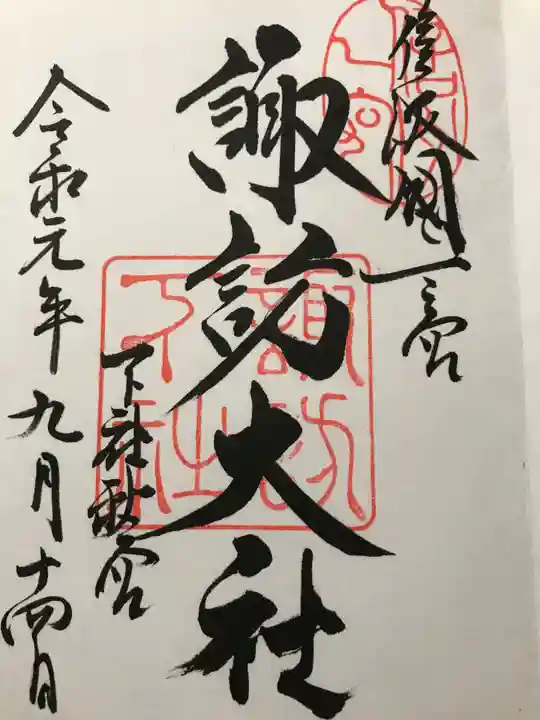 信濃國一之宮
諏訪大社
下社秋宮
令和元年九月十四日
諏訪
下社